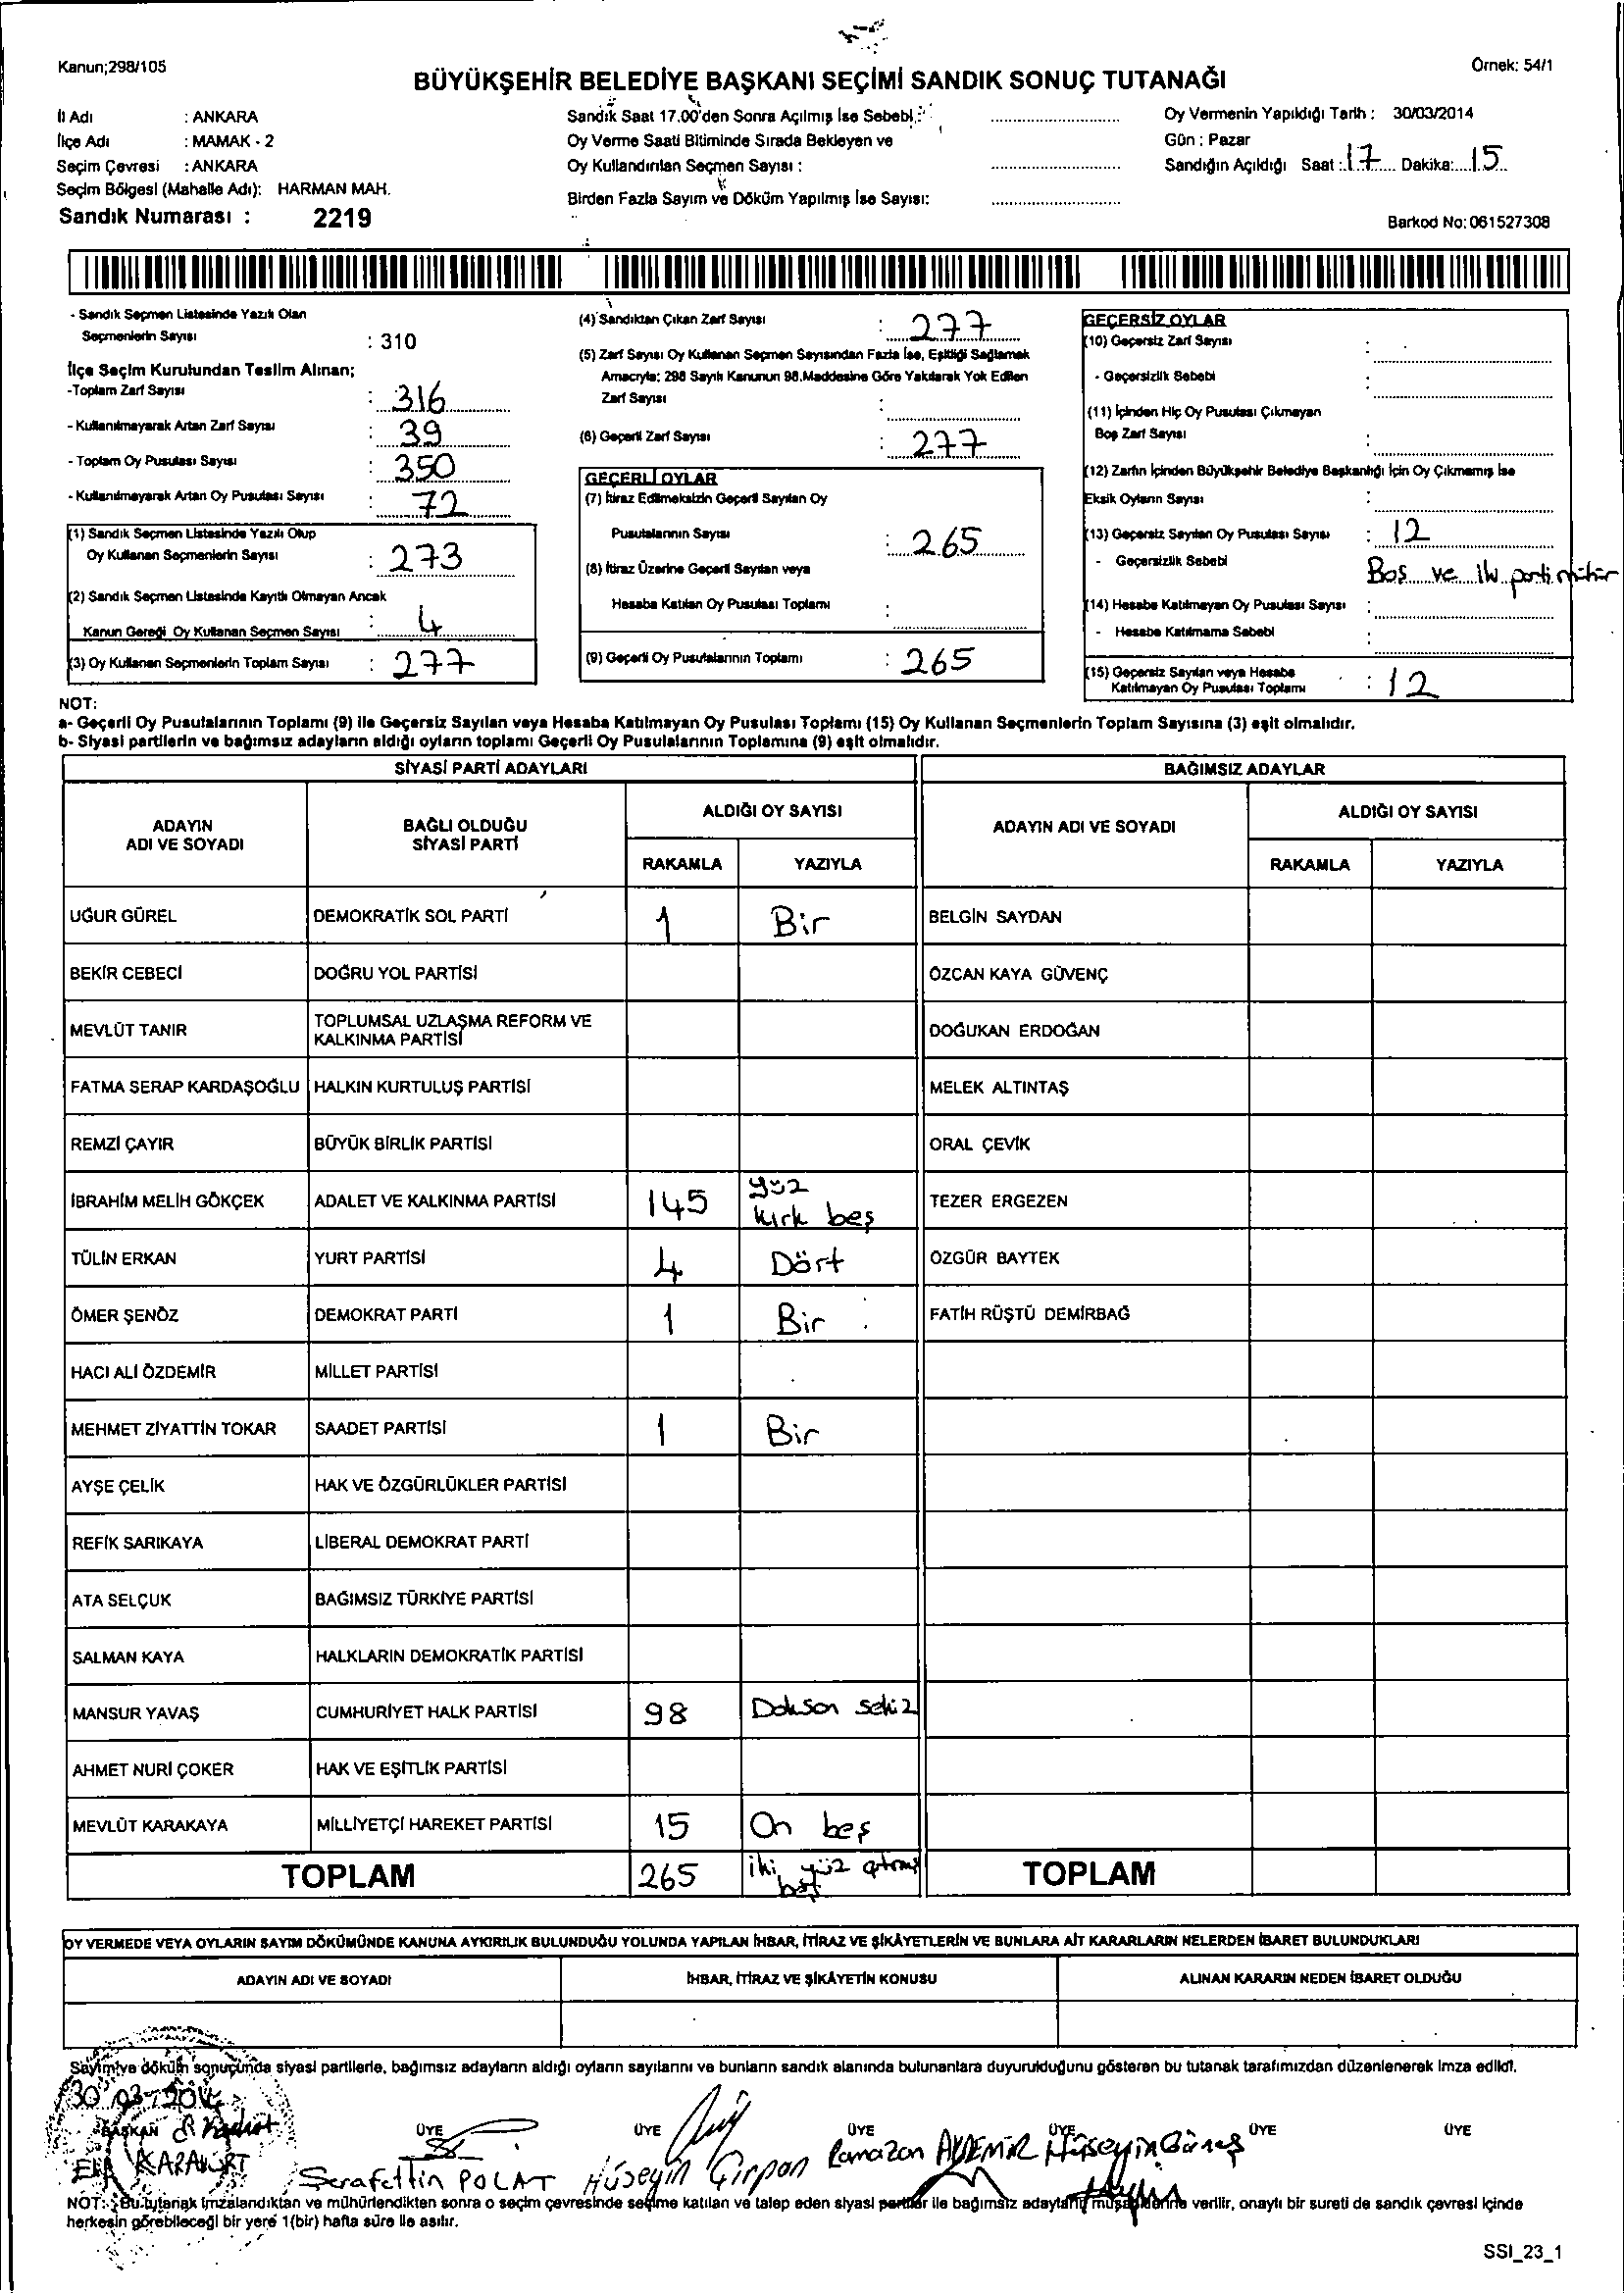 Kanun;298/105
Örnek: 54/1
BÜYÜKŞEHİR BELEDİYE BAŞKANI SEÇİMİ SANDIK SONUÇ TUTANAĞI
İl Adı : ANKARA
İlçe Adı : MAMAK - 2
Seçim Çevresi : ANKARA
Seçim Bölgesi (Mahalle Adı): HARMAN MAH.
Sandık Numarası : 2219
Sandık Saat 17.00'den Sonra Açılmış İse Sebebi :
Oy Verme Saati Bitiminde Sırada Bekleyen ve
Oy Kullandırılan Seçmen Sayısı :
Birden Fazla Sayım ve Döküm Yapılmış İse Sayısı:
Oy Vermenin Yapıldığı Tarih : 30/03/2014
Gün : Pazar
Sandığın Açıldığı Saat : 17 Dakika: 15
Barkod No: 061527308
- Sandık Seçmen Listesinde Yazılı Olan
Seçmenlerin Sayısı : 310
İlçe Seçim Kurulundan Teslim Alınan;
-Toplam Zarf Sayısı : 316
- Kullanılmayarak Artan Zarf Sayısı : 39
- Toplam Oy Pusulası Sayısı : 350
- Kullanılmayarak Artan Oy Pusulası Sayısı : 72
(1) Sandık Seçmen Listesinde Yazılı Olup
Oy Kullanan Seçmenlerin Sayısı : 273
(2) Sandık Seçmen Listesinde Kayıtlı Olmayan Ancak
Kanun Gereği Oy Kullanan Seçmen Sayısı : 4
(3) Oy Kullanan Seçmenlerin Toplam Sayısı : 277
(4) Sandıktan Çıkan Zarf Sayısı : 277
(5) Zarf Sayısı Oy Kullanan Seçmen Sayısından Fazla İse, Eşitliği Sağlamak
Amacıyla; 298 Sayılı Kanunun 98.Maddesine Göre Yakılarak Yok Edilen
Zarf Sayısı :
(6) Geçerli Zarf Sayısı : 277
GEÇERLİ OYLAR
(7) İtiraz Edilmeksizin Geçerli Sayılan Oy
Pusulalarının Sayısı : 265
(8) İtiraz Üzerine Geçerli Sayılan veya
Hesaba Katılan Oy Pusulası Toplamı :
(9) Geçerli Oy Pusulalarının Toplamı : 265
GEÇERSİZ OYLAR
(10) Geçersiz Zarf Sayısı :
- Geçersizlik Sebebi :
(11) İçinden Hiç Oy Pusulası Çıkmayan
Boş Zarf Sayısı :
(12) Zarfın İçinden Büyükşehir Belediye Başkanlığı İçin Oy Çıkmamış İse
Eksik Oyların Sayısı :
(13) Geçersiz Sayılan Oy Pusulası Sayısı : 12
- Geçersizlik Sebebi Boş ve iki parti mühür
(14) Hesaba Katılmayan Oy Pusulası Sayısı :
- Hesaba Katılmama Sebebi :
(15) Geçersiz Sayılan veya Hesaba
Katılmayan Oy Pusulası Toplamı : 12
NOT:
a- Geçerli Oy Pusulalarının Toplamı (9) ile Geçersiz Sayılan veya Hesaba Katılmayan Oy Pusulası Toplamı (15) Oy Kullanan Seçmenlerin Toplam Sayısına (3) eşit olmalıdır.
b- Siyasi partilerin ve bağımsız adayların aldığı oyların toplamı Geçerli Oy Pusulalarının Toplamına (9) eşit olmalıdır.
SİYASİ PARTİ ADAYLARI BAĞIMSIZ ADAYLAR
ADAYIN
ADI VE SOYADI
BAĞLI OLDUĞU
SİYASİ PARTİ
ALDIĞI OY SAYISI
RAKAMLA YAZIYLA
ADAYIN ADI VE SOYADI
ALDIĞI OY SAYISI
RAKAMLA YAZIYLA
UĞUR GÜREL DEMOKRATİK SOL PARTİ 1 Bir BELGİN SAYDAN
BEKİR CEBECİ DOĞRU YOL PARTİSİ ÖZCAN KAYA GÜVENÇ
MEVLÜT TANIR TOPLUMSAL UZLAŞMA REFORM VE
KALKINMA PARTİSİ DOĞUKAN ERDOĞAN
FATMA SERAP KARDAŞOĞLU HALKIN KURTULUŞ PARTİSİ MELEK ALTINTAŞ
REMZİ ÇAYIR BÜYÜK BİRLİK PARTİSİ ORAL ÇEVİK
İBRAHİM MELİH GÖKÇEK ADALET VE KALKINMA PARTİSİ 145 yüz
kırk beş TEZER ERGEZEN
TÜLİN ERKAN YURT PARTİSİ 4 Dört ÖZGÜR BAYTEK
ÖMER ŞENÖZ DEMOKRAT PARTİ 1 Bir FATİH RÜŞTÜ DEMİRBAĞ
HACI ALİ ÖZDEMİR MİLLET PARTİSİ
MEHMET ZİYATTİN TOKAR SAADET PARTİSİ 1 Bir
AYŞE ÇELİK HAK VE ÖZGÜRLÜKLER PARTİSİ
REFİK SARIKAYA LİBERAL DEMOKRAT PARTİ
ATA SELÇUK BAĞIMSIZ TÜRKİYE PARTİSİ
SALMAN KAYA HALKLARIN DEMOKRATİK PARTİSİ
MANSUR YAVAŞ CUMHURİYET HALK PARTİSİ 98 Doksan sekiz
AHMET NURİ ÇOKER HAK VE EŞİTLİK PARTİSİ
MEVLÜT KARAKAYA MİLLİYETÇİ HAREKET PARTİSİ 15 On beş
TOPLAM 265 iki yüz atmış
beş TOPLAM
OY VERMEDE VEYA OYLARIN SAYIM DÖKÜMÜNDE KANUNA AYKIRILIK BULUNDUĞU YOLUNDA YAPILAN İHBAR, İTİRAZ VE ŞİKÂYETLERİN VE BUNLARA AİT KARARLARIN NELERDEN İBARET BULUNDUKLARI
ADAYIN ADI VE SOYADI İHBAR, İTİRAZ VE ŞİKÂYETİN KONUSU ALINAN KARARIN NEDEN İBARET OLDUĞU
Sayım ve döküm sonucunda siyasi partilerle, bağımsız adayların aldığı oyların sayılarını ve bunların sandık alanında bulunanlara duyurulduğunu gösteren bu tutanak tarafımızdan düzenlenerek imza edildi.
30 03 2014
BAŞKAN ÜYE ÜYE ÜYE ÜYE ÜYE ÜYE
KARAKURT Serafettin POLAT Hüseyin Çırpan Ramazan AYDEMİR Hüseyin Güneş
NOT: Bu tutanak imzalandıktan ve mühürlendikten sonra o seçim çevresinde seçime katılan ve talep eden siyasi partiler ile bağımsız adayların müşahitlerine verilir, onaylı bir sureti de sandık çevresi içinde
herkesin görebileceği bir yere 1(bir) hafta süre ile asılır.
SSI_23_1